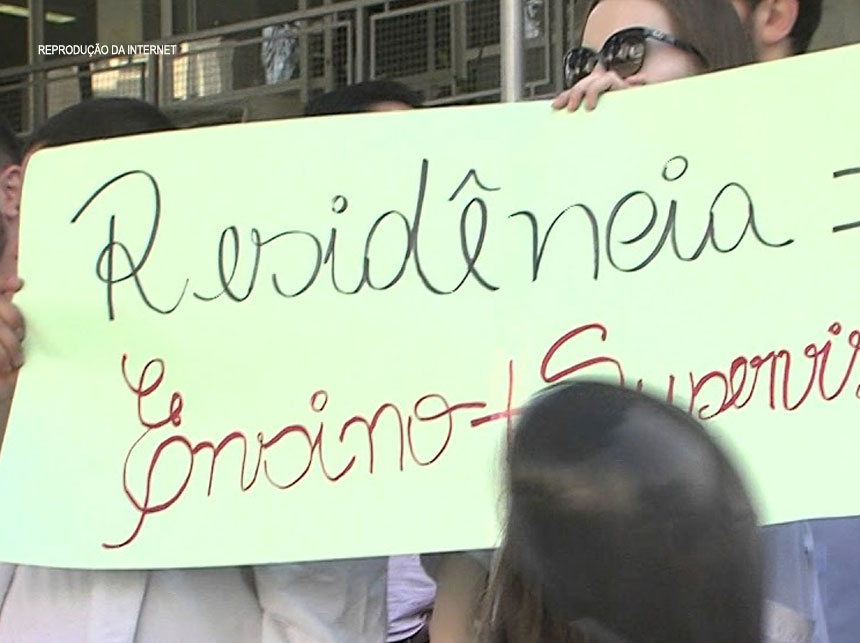 REPRODUÇÃO DA INTERNET
Residência =
Ensino + Supervis